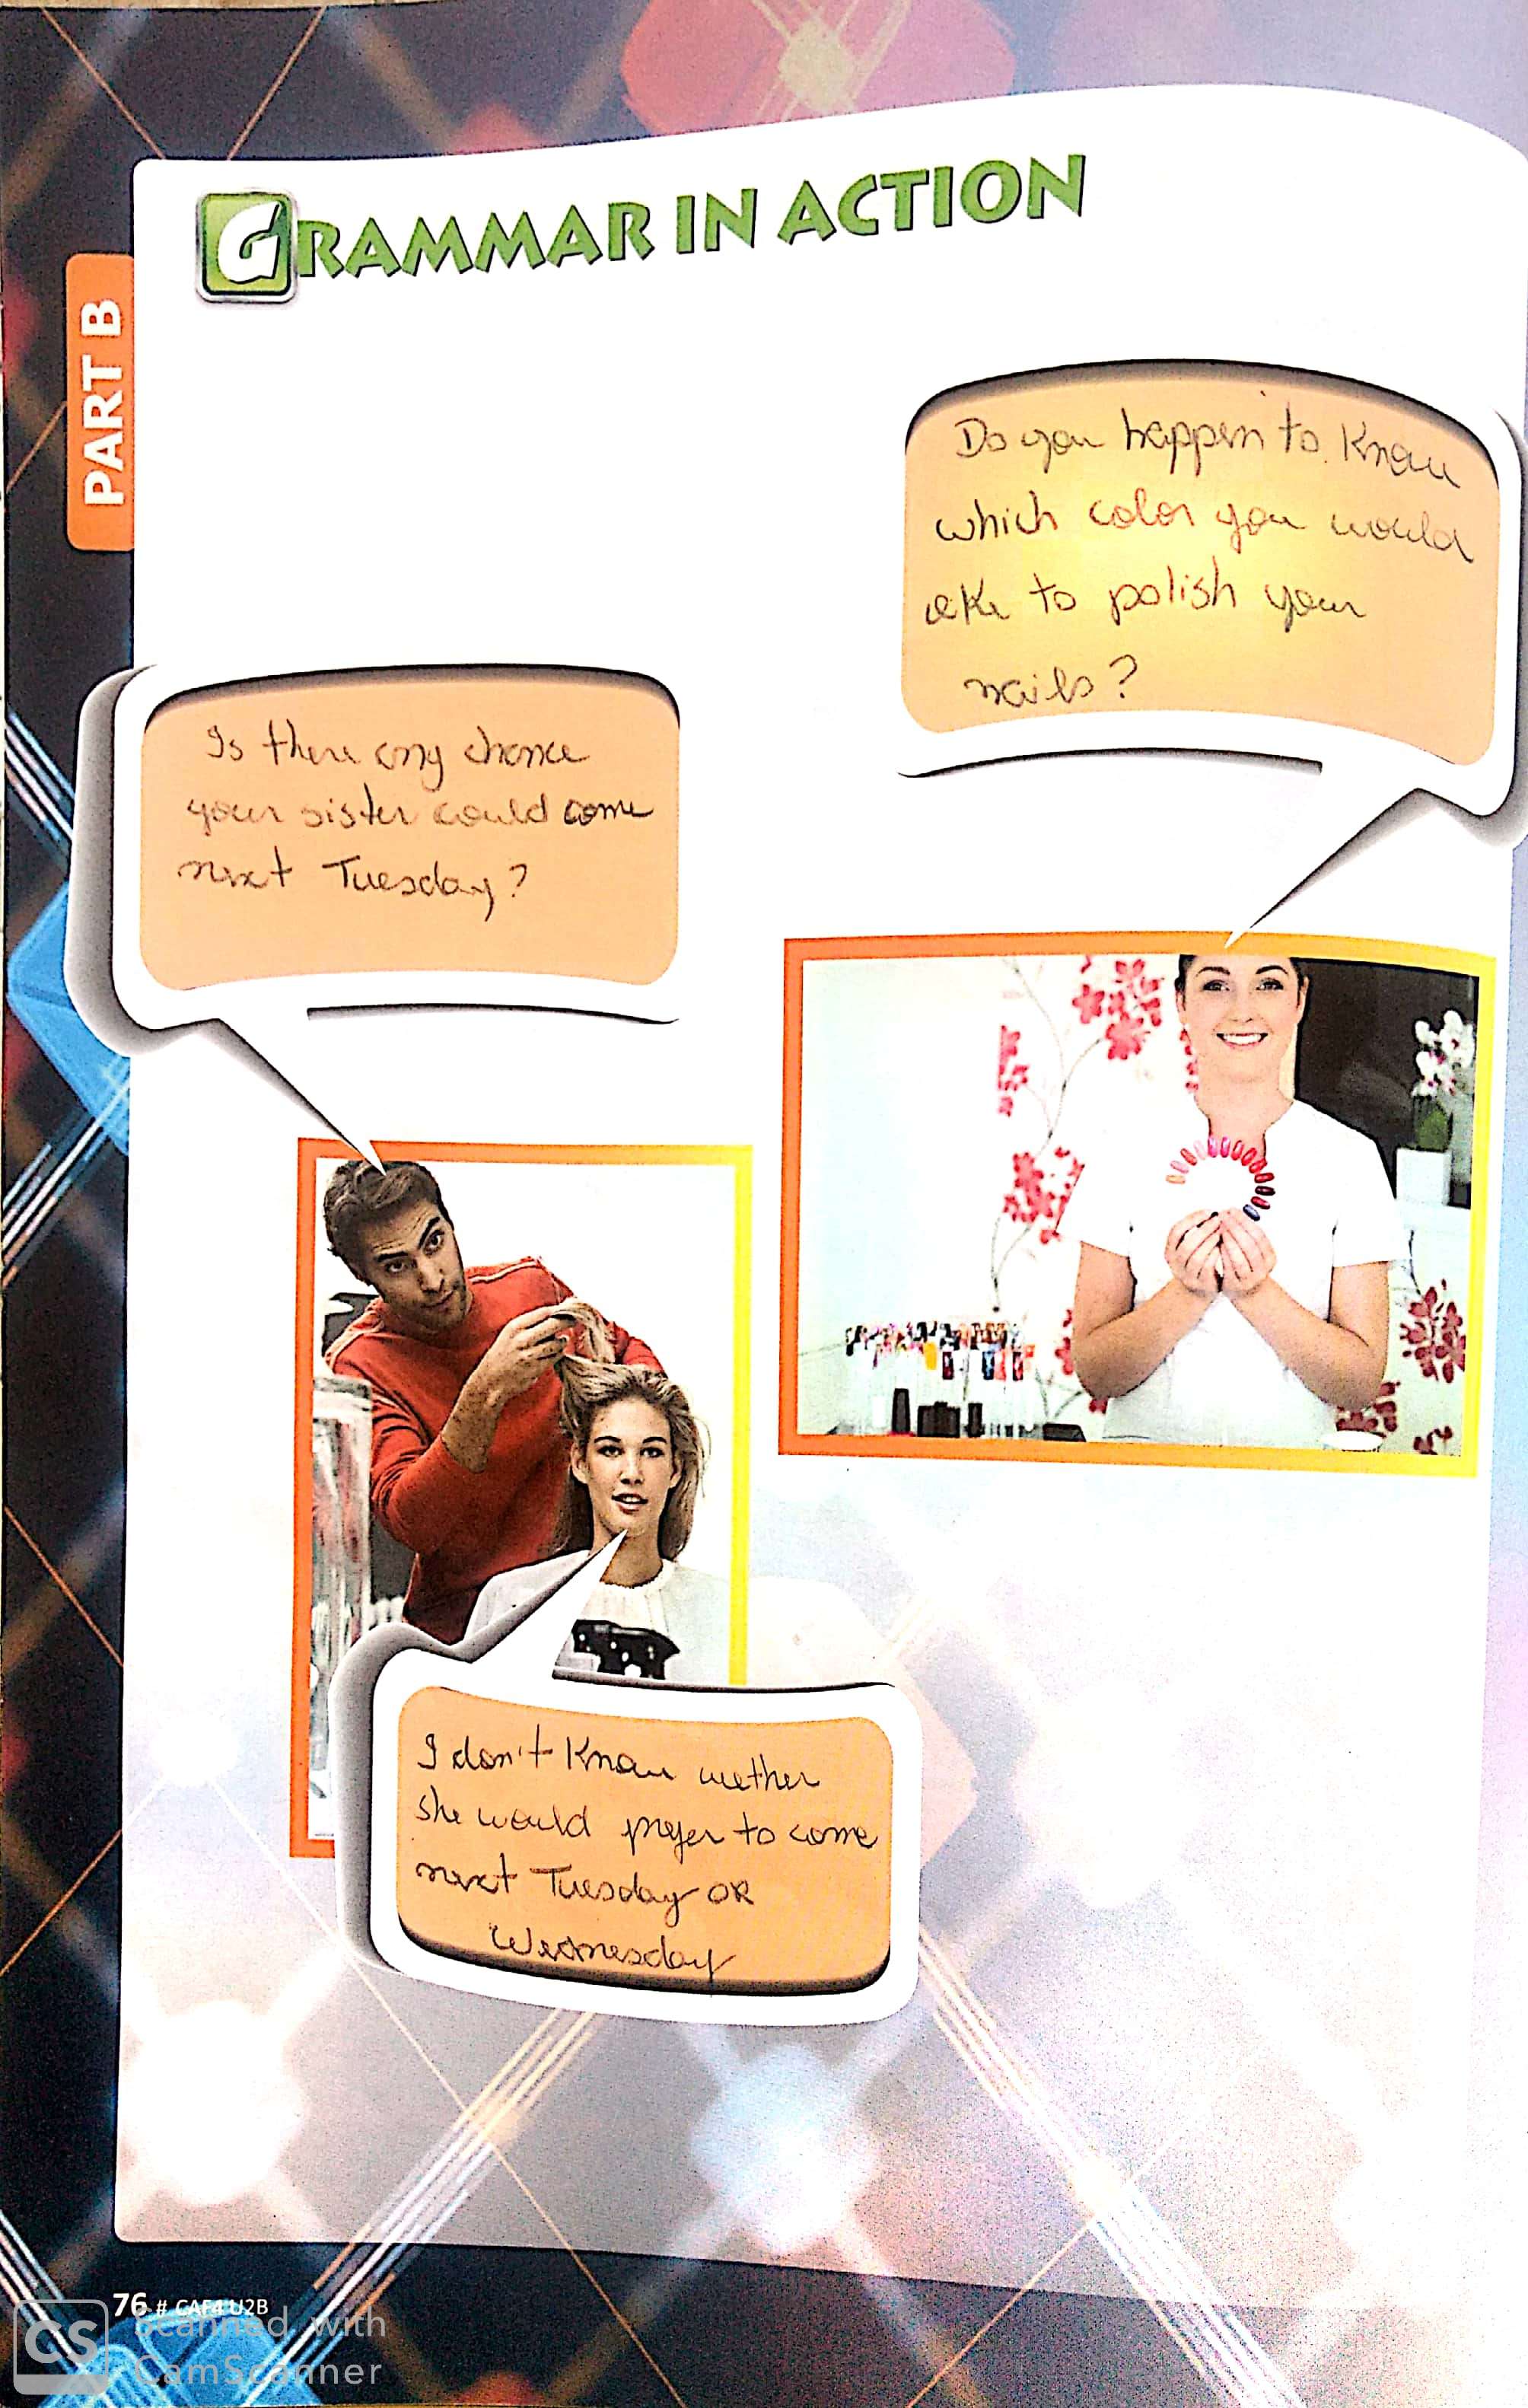 GRAMMAR IN ACTION
PART B
Do you happen to know
which color you would
like to polish your
nails?
Is there any chance
your sister could come
next Tuesday?
I don't know wether
she would prefer to come
next Tuesday OR
Wednesday
76 # CAF4 U2B
CS Scanned with
CamScanner